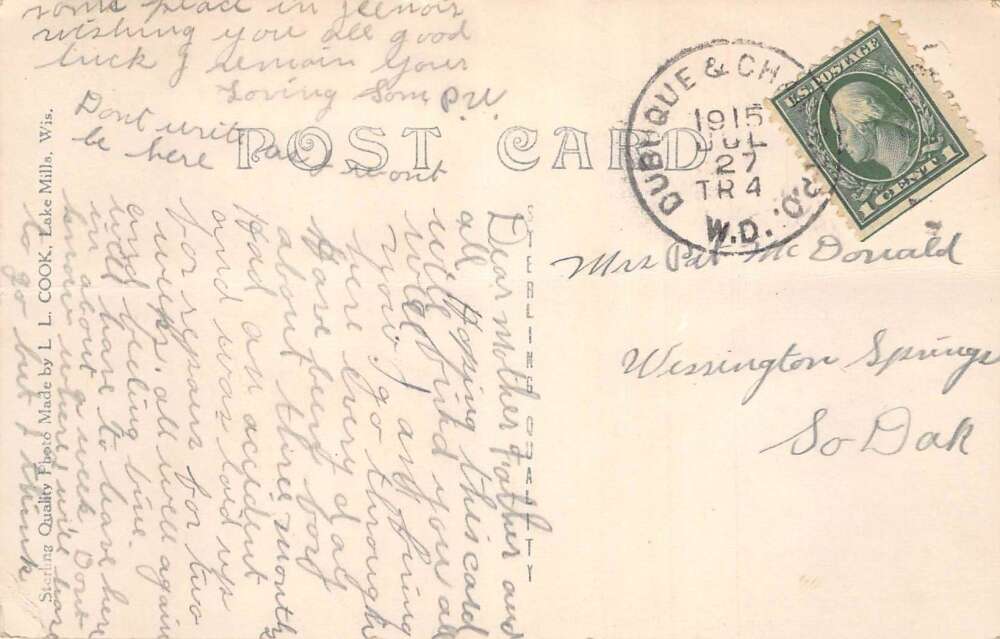 POST CARD
STERLING QUALITY
Sterling Quality Photo Made by L. L. COOK, Lake Mills, Wis.
DUBUQUE & CH R.P.O.
1915
JUL
27
TR 4
W.D.
U.S. POSTAGE
1 CENT 1
Mrs Pat McDonald
Wessington Springs
So Dak
Dear Mother Father and
all Hoping this card
will find you all
well I am fine
you go through
here every day
Have been
about three months
Had an accident
and was laid up
for repairs for two
weeks. all well again
and feeling fine.
will have to leave here
in about a week Dont
know where I will have
to go but I think
some place in Illinois
wishing you all good
luck I remain your
Loving Son P.W.
Dont write as I wont
be here